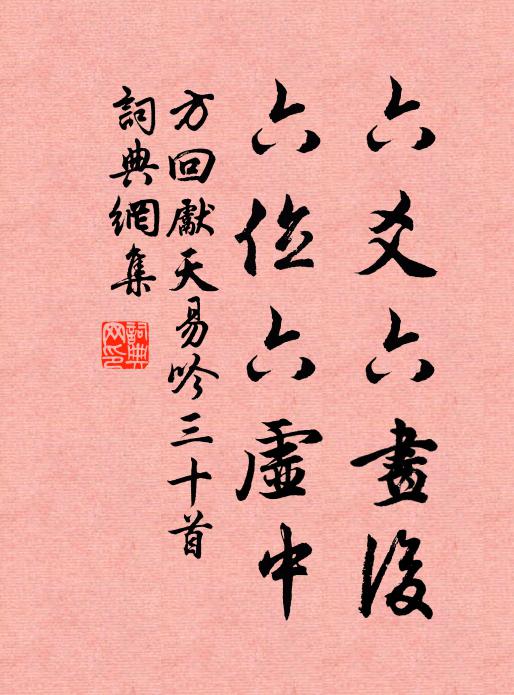 六爻六畫後
六位六虛中
方回獻天易吟三十首
詞典網集
詞典网印